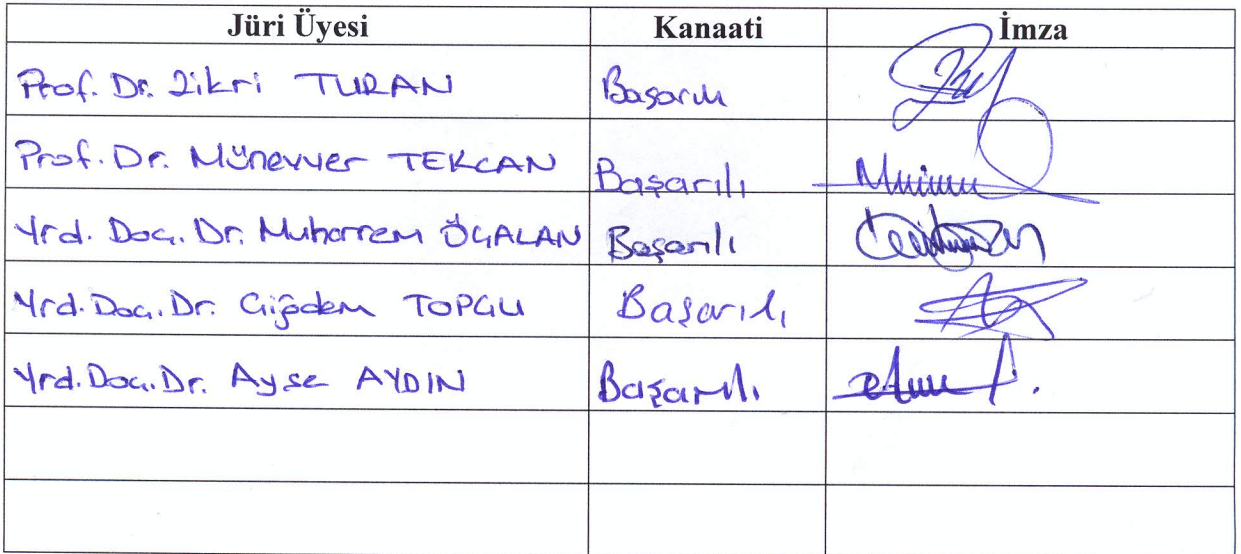 Jüri Üyesi Kanaati İmza
Prof. Dr. Zikri TURAN Başarılı
Prof. Dr. Münevver TEKCAN Başarılı
Yrd. Doç. Dr. Muharrem ÖÇALAN Başarılı
Yrd. Doç. Dr. Çiğdem TOPÇU Başarılı
Yrd. Doç. Dr. Ayşe AYDIN Başarılı